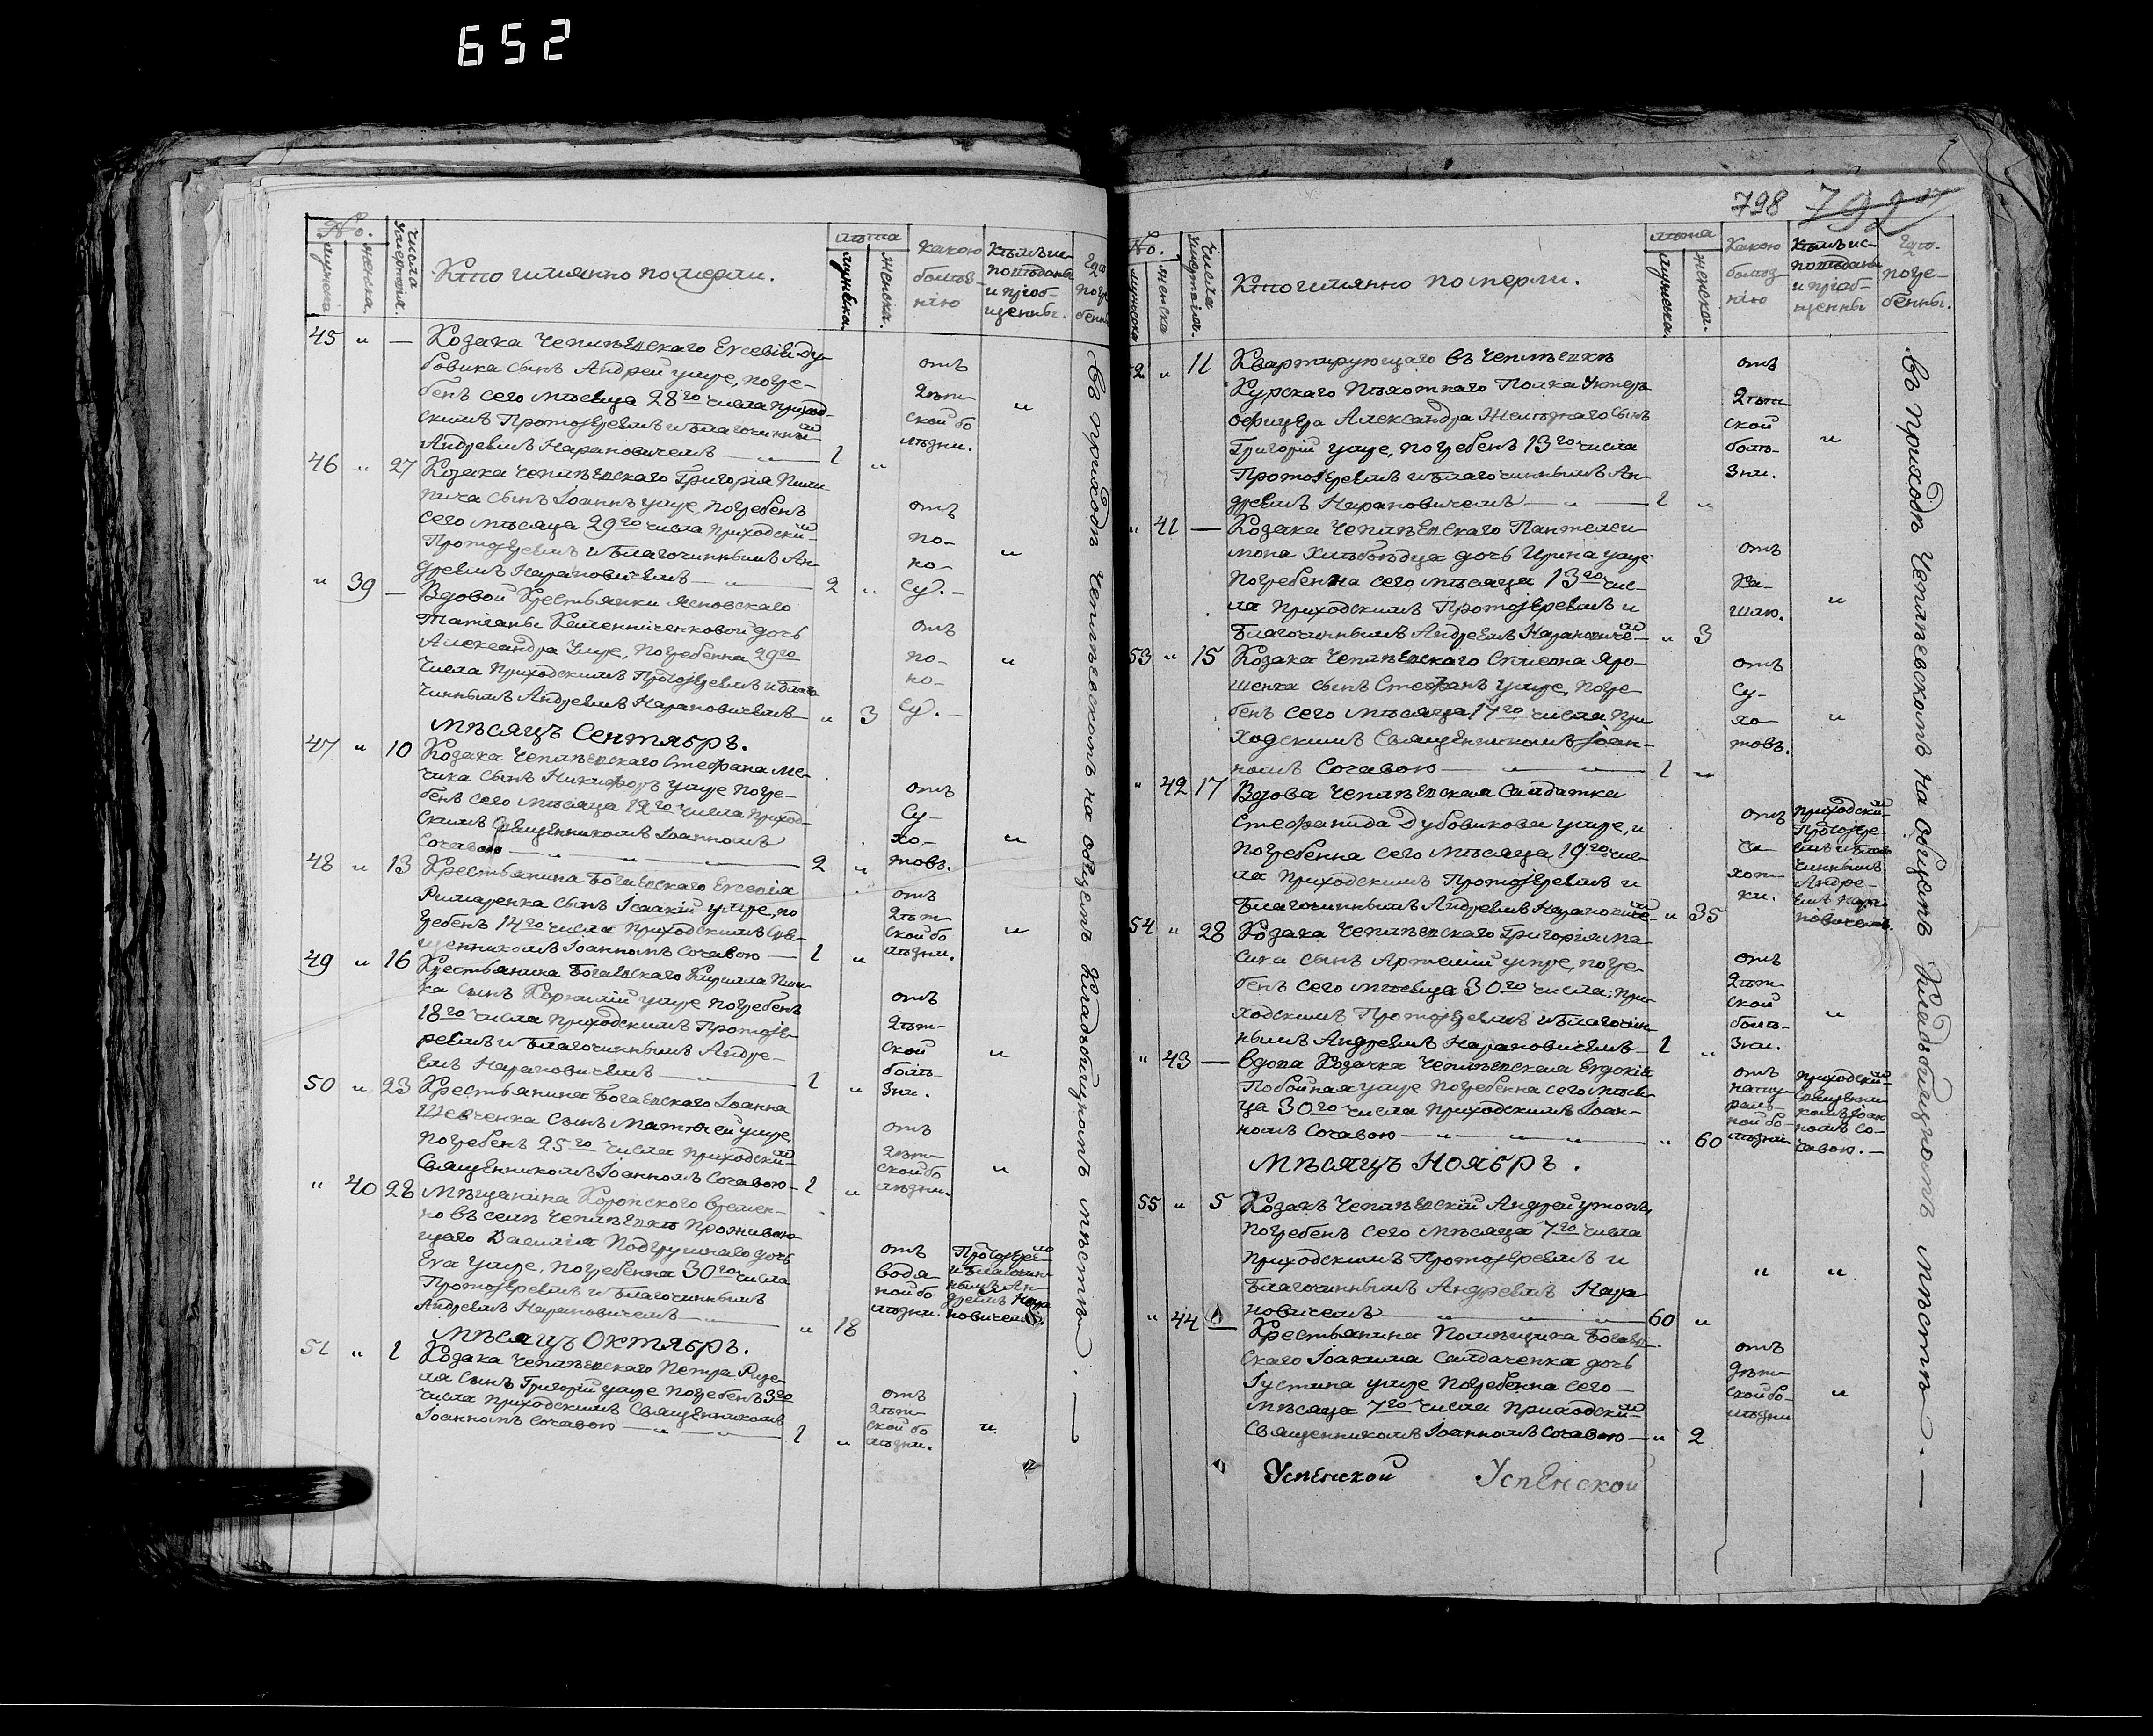 652
No.
мужеска
женска.
Числа умертвія.
Кто имянно померли.
лѣта
мужеска.
женска.
Какою болѣз-
нію
Кѣмъ ис-
повѣданы
и пріоб-
щенны.
45 „ — Козака Чепляевскаго Евсевія Ду-
бовика сынъ Андрей умре, погре-
бенъ сего мѣсяца 28го числа приход-
скимъ Протоіереемъ и Благочинны
Андреемъ Нарановичемъ — „ — 1 „
отъ
дѣт-
ской бо
лѣзни.
46 „ 27 Козака Чепляевскаго Григорія Пили
пича сынъ Іоаннъ умре, погребенъ
сего мѣсяца 29го числа приходским
Протоіереемъ и Благочиннымъ Ан-
дреемъ Нарановичемъ — „ — 2 „
отъ
по-
но-
су. —
„ 39 — Вдовой Крестьянки
Татіаны дочь
Александра умре, погребенна 29го
числа приходскимъ Протоіереемъ и Благо
чиннымъ Андреемъ Нарановичемъ — „ 3
отъ
по-
но-
су. —
Мѣсяцъ Сентябръ.
47 „ 10 Козака Чепляевскаго Стефана Ме-
чика сынъ Никифоръ умре погре-
бенъ сего мѣсяца 12го числа приход-
скимъ Священникомъ Іоанномъ
Сочавою — „ — „ — „ — 2 „
отъ
Су-
хо-
товъ.
48 „ 13 Крестьянина Богаевскаго Евсевія
Римаренка сынъ Ісаакій умре, по
гребенъ 14го числа приходскимъ Свя-
щенникомъ Іоанномъ Сочавою — 1 „
отъ
дѣт-
ской бо
лѣзни.
49 „ 16 Крестьянина Богаевскаго Кирилла
сынъ Корнилій умре погребенъ
18го числа приходскимъ Протоіе-
реемъ и Благочиннымъ Андре-
емъ Нарановичемъ — „ — 1 „
отъ
дѣт-
ской
болѣ-
зни.
50 „ 23 Крестьянина Богаевскаго Іоанна
Шевченка сынъ Матѳей умре,
погребенъ 25го числа приходским
Священникомъ Іоанномъ Сочавою — 1 „
отъ
дѣт-
ской бо
лѣзни.
„ 40 28 Мѣщанина Коропского времен-
но въ селѣ Чепляевкѣ проживаю-
щаго Василія дочь
Ева умре, погребенна 30го числа
Протоіереемъ и Благочиннымъ
Андреемъ Нарановичемъ — „ — „ 18
отъ
водя-
ной бо
лѣзни.
Протоіерее
и Благочин-
нымъ Ан-
дреемъ Нара
новичемъ
Мѣсяцъ Октябръ.
51 „ 1 Козака Чепляевскаго Петра
сынъ Григорій умре погребенъ 3го
числа приходскимъ Священникомъ
Іоанномъ Сочавою — „ — „ — 1 „
отъ
дѣт-
ской бо
лѣзни.
въ приходѣ Чепляевскомъ на общемъ Кладбищномъ мѣстѣ. —
798 799
No.
мужеска
женска
Числа умертвія.
Кто имянно померли.
лѣта
мужеска.
женска.
Какою
болѣз-
нію
Кѣмъ ис-
повѣданы
и пріоб-
щенны
Гдѣ
погре-
бенны.
52 „ 11 Квартирующаго въ Чепляевкѣ
Курскаго Пѣхотнаго Полка Унтеръ
офицера Александра Желѣзнаго сынъ
Григорій умре, погребенъ 13го числа
Протоіереемъ и Благочиннымъ Ан-
дреемъ Нарановичемъ — „ — 1 „
отъ
дѣт-
ской
болѣ-
зни.
„ 41 — Козака Чепляевскаго Пантелеи-
мона Хлѣбоѣдца дочь Ирина умре
погребенна сего мѣсяца 13го чис-
ла приходскимъ Протоіереемъ и
Благочиннымъ Андреемъ Нарановиче — „ 3
отъ
Ка-
шлю.
53 „ 15 Козака Чепляевскаго Симеона Яро-
шенка сынъ Стефанъ умре, погре-
бенъ сего мѣсяца 17го числа при-
ходскимъ Священникомъ Іоан-
номъ Сочавою — „ — 1 „
отъ
Су-
хо-
товъ.
„ 42 17 Вдова Чепляевская Салдатка
Стефанида Дубовикова умре, и
погребенна сего мѣсяца 19го чис-
ла приходскимъ Протоіереемъ и
Благочиннымъ Андреемъ Нарановиче — „ 35
отъ
Ча-
хот-
ки.
приходским
Протоіере-
емъ и Благо
чиннымъ
Андре-
емъ Нара-
новичемъ.
54 „ 28 Козака Чепляевскаго Григорія Ма-
сика сынъ Артемій умре, погре-
бенъ сего мѣсяца 30го числа, при-
ходскимъ Протоіереемъ и Благочин-
нымъ Андреемъ Нарановичемъ — 1 „
отъ
дѣт-
ской
болѣ-
зни.
„ 43 — Вдова Козачка Чепляевская Евдокія
Побойная умре погребенна сего мѣся-
ца 30го числа приходскимъ Іоан-
номъ Сочавою — „ — „ — „ — „ 60
отъ
нату-
раль-
ной бо-
лѣзни
приходским
Священни-
комъ Іоан
номъ Со-
чавою. —
Мѣсяцъ Ноябръ.
55 „ 5 Козакъ Чепляевскій Андрей утопъ,
погребенъ сего мѣсяца 7го числа
приходскимъ Протоіереемъ и
Благочиннымъ Андреемъ Нара
новичемъ — „ — „ — 60 „
„ 44 — Крестьянина Помѣщика Богаев-
скаго Іоакима Салдаченка дочь
Іустина умре погребенна сего —
мѣсяца 7го числа приходским
Священникомъ Іоанномъ Сочавою — „ 2
отъ
дѣт-
ской бо-
лѣзни
Успенской Успенской
въ приходѣ Чепляевскомъ на общемъ Кладбищномъ мѣстѣ. —